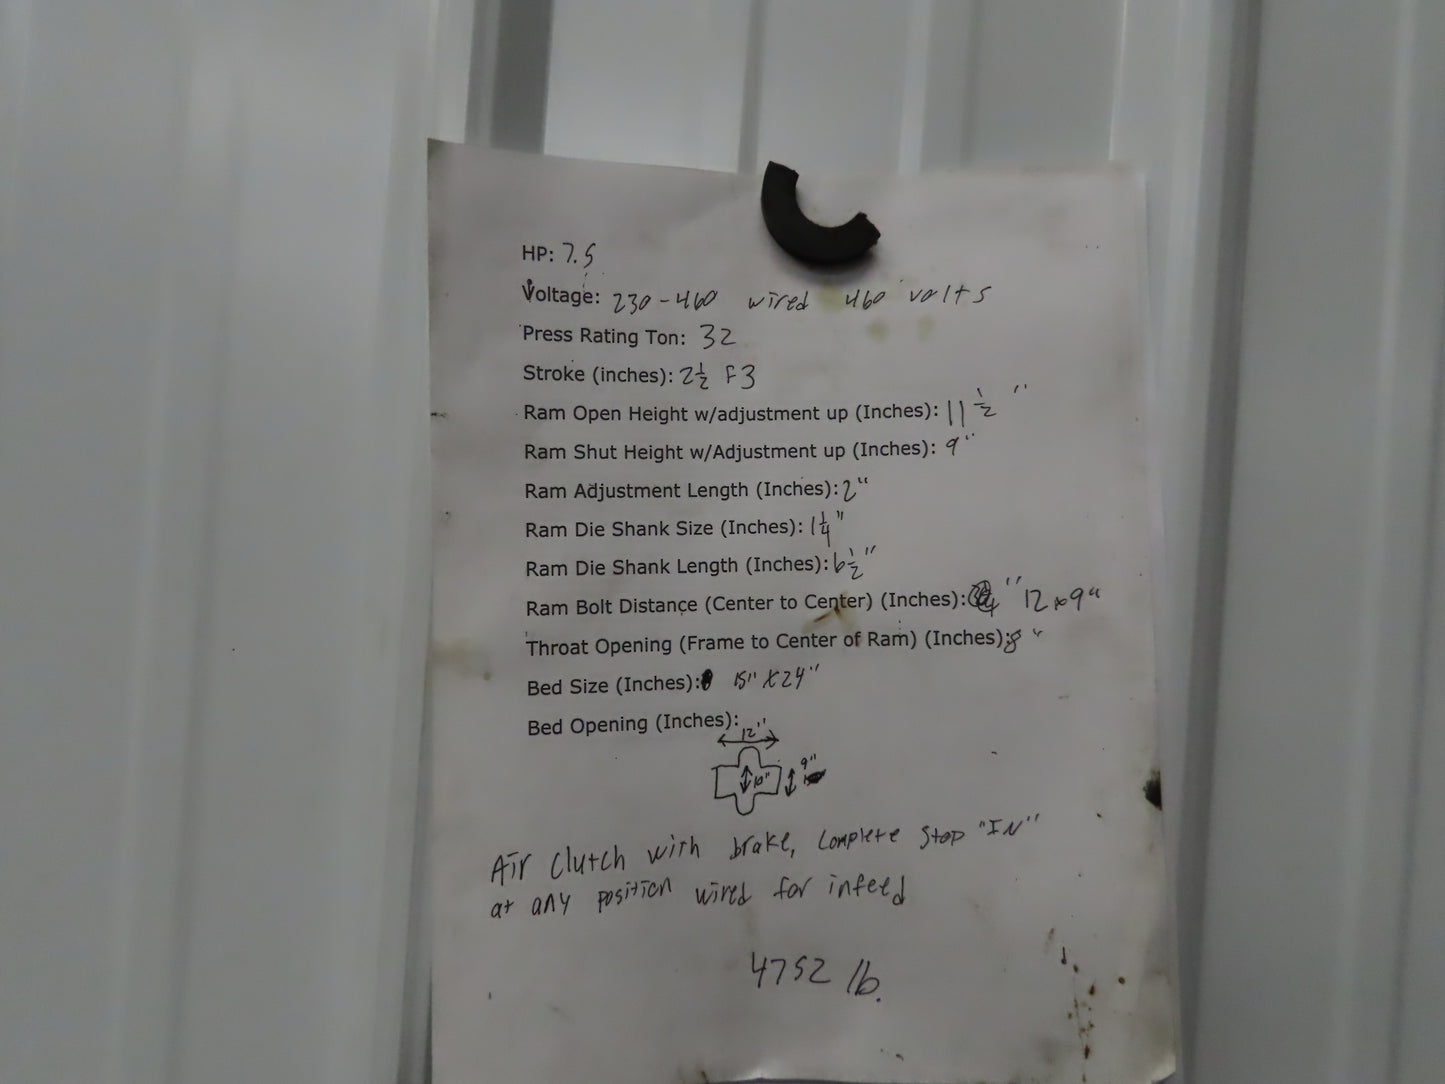 HP: 7.5
Voltage: 230-460 wired 460 volts
Press Rating Ton: 32
Stroke (inches): 2 1/2 F3
Ram Open Height w/adjustment up (Inches): 11 1/2 "
Ram Shut Height w/Adjustment up (Inches): 9"
Ram Adjustment Length (Inches): 2"
Ram Die Shank Size (Inches): 1 1/4"
Ram Die Shank Length (Inches): 6 1/2"
Ram Bolt Distance (Center to Center) (Inches): " 12 x 9"
Throat Opening (Frame to Center of Ram) (Inches): 8"
Bed Size (Inches): 15" X 24"
Bed Opening (Inches):
12"
9"
10"
Air Clutch with brake, complete stop "IN"
at any position wired for infeed
4752 lb.